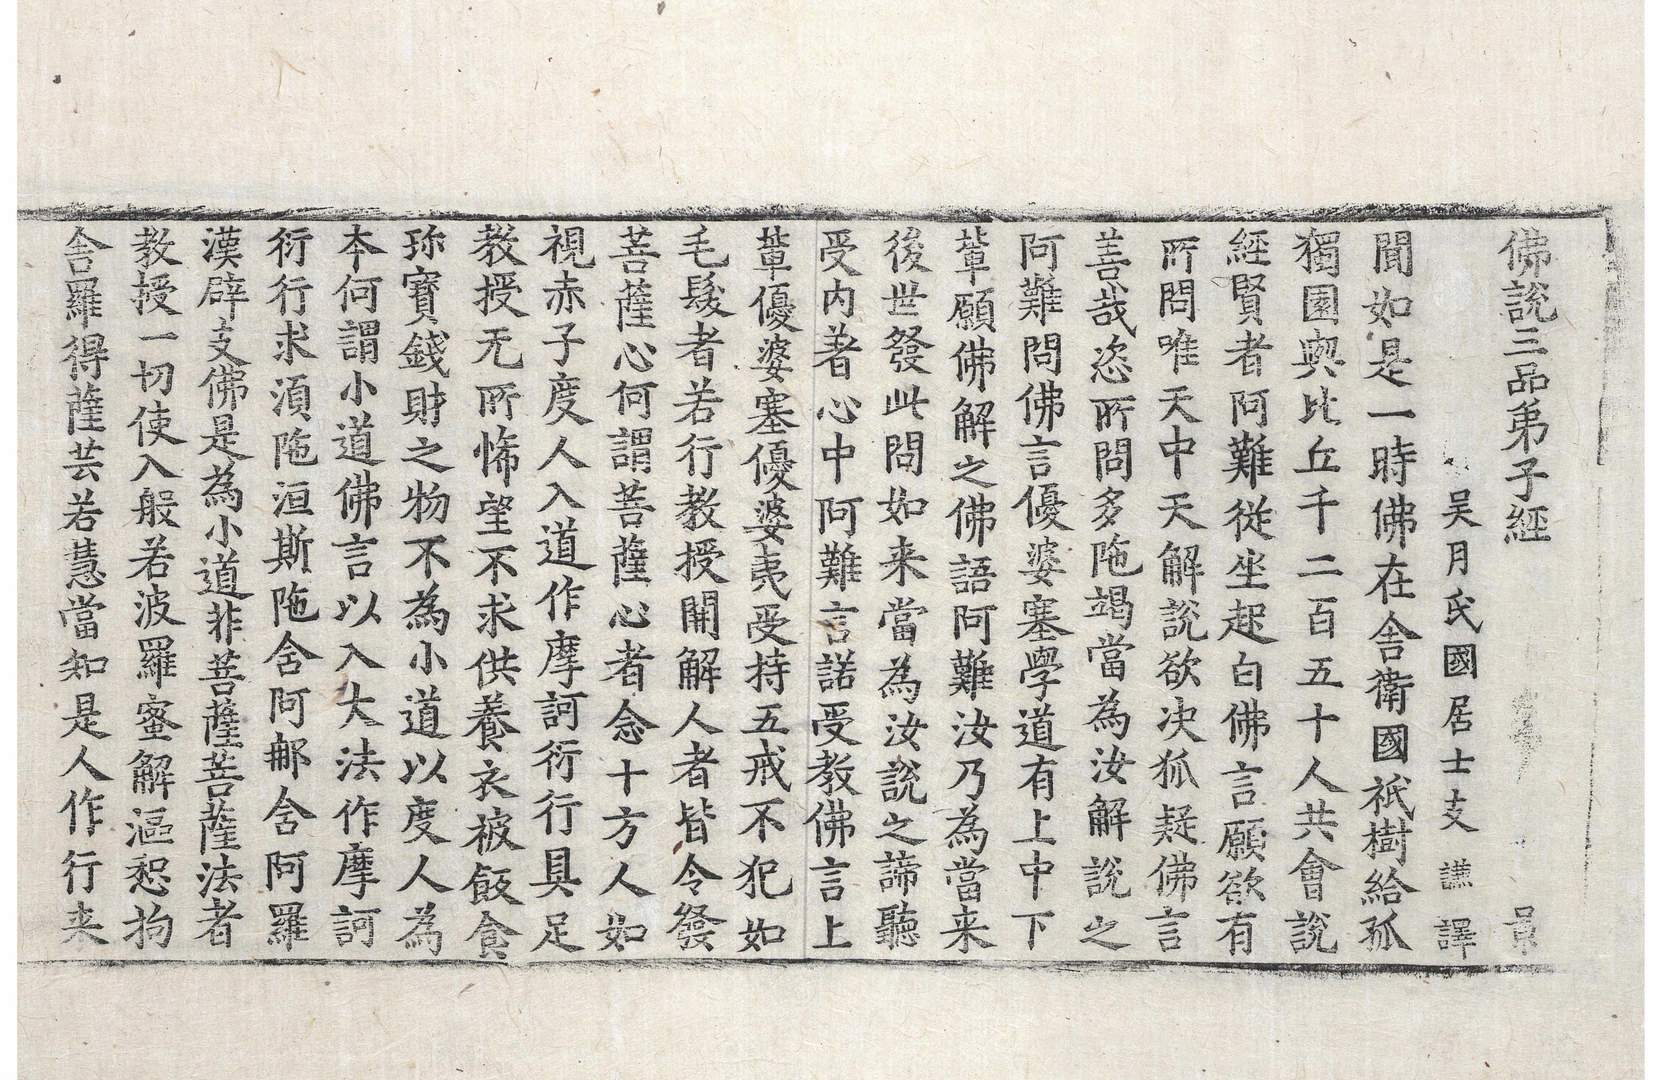 佛說三品弟子經
吴月氏國居士支謙譯
聞如是一時佛在舍衛國祇樹給孤
獨園與比丘千二百五十人共會說
經賢者阿難從坐起白佛言願欲有
所問唯天中天解說欲决狐疑佛言
善哉恣所問多陁竭當為汝解說之
阿難問佛言優婆塞學道有上中下
輩願佛解之佛語阿難汝乃為當来
後世發此問如来當為汝說之諦聽
受內著心中阿難言諾受教佛言上
輩優婆塞優婆夷受持五戒不犯如
毛髮者若行教授開解人者皆令發
菩薩心何謂菩薩心者念十方人如
視赤子度人入道作摩訶衍行具足
教授无所悕望不求供養衣被飯食
珎寳錢財之物不為小道以度人為
本何謂小道佛言以入大法作摩訶
衍行求湏陁洹斯陁含阿那含阿羅
漢辟支佛是為小道非菩薩菩薩法者
教授一切使入般若波羅蜜解漚惒拘
舍羅得薩芸若慧當知是人作行来